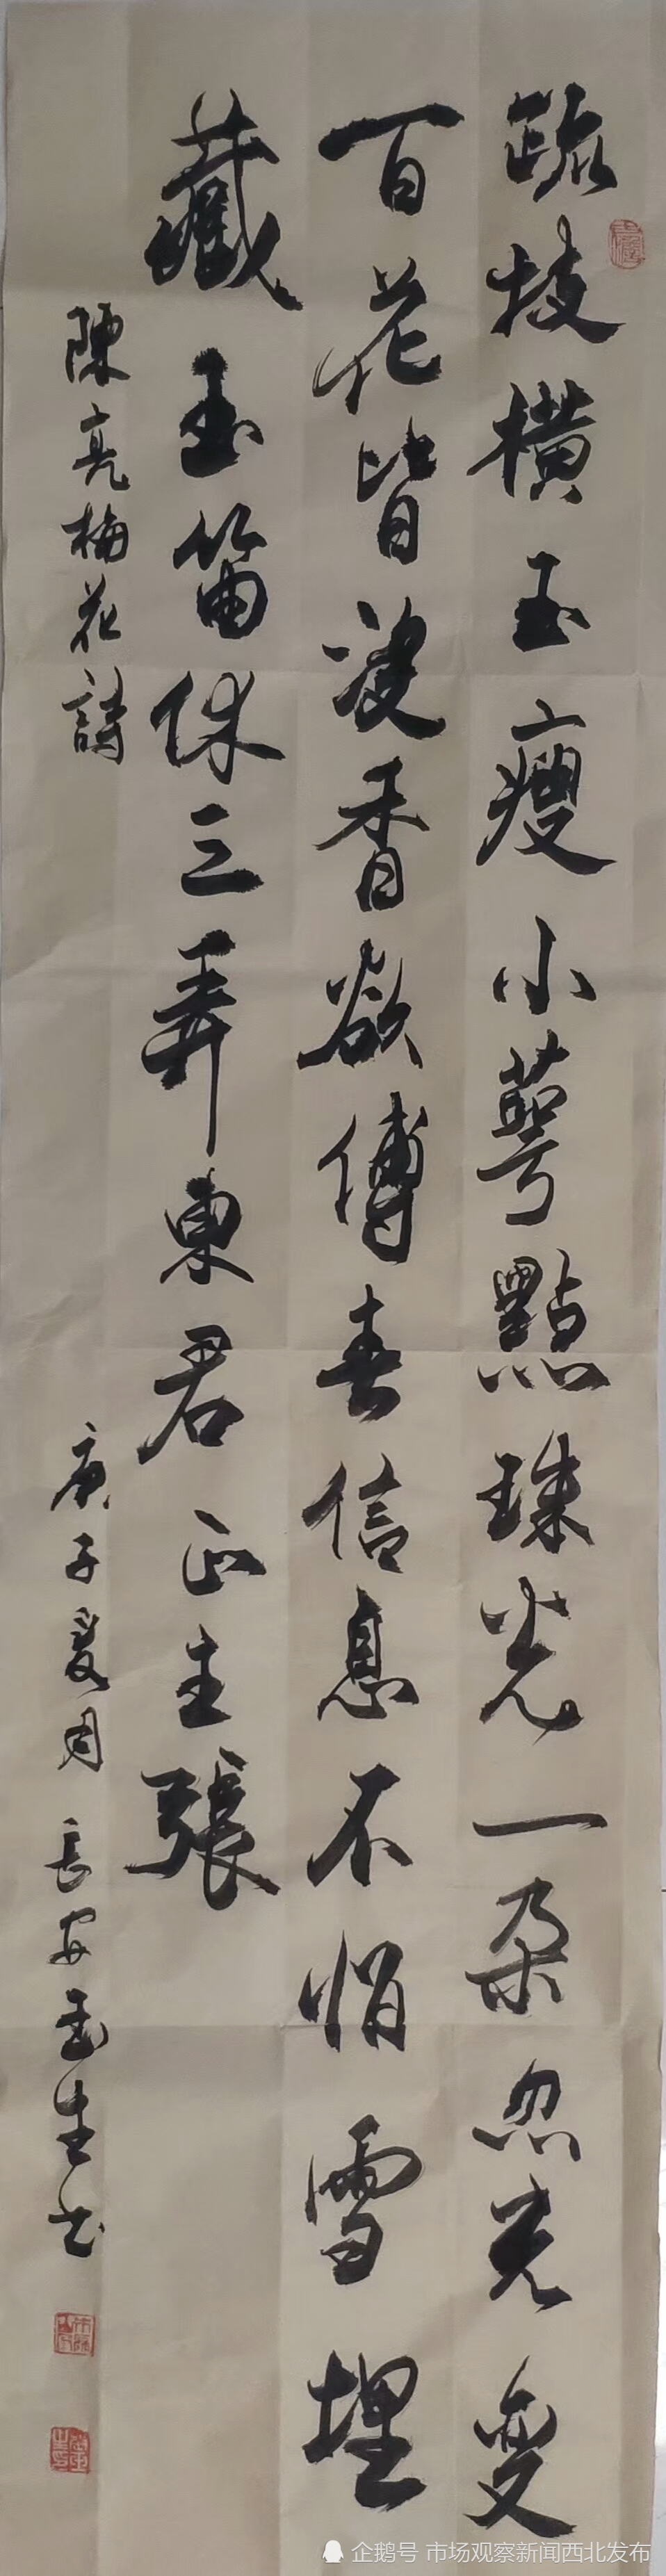 疏枝橫玉瘦小萼點珠光一朵忽先變
百花皆後香欲傳春信息不怕雪埋
藏玉笛休三弄東君正主張
陳亮梅花詩 庚子夏月 長安玉生书
企鹅号 市场观察新闻西北发布